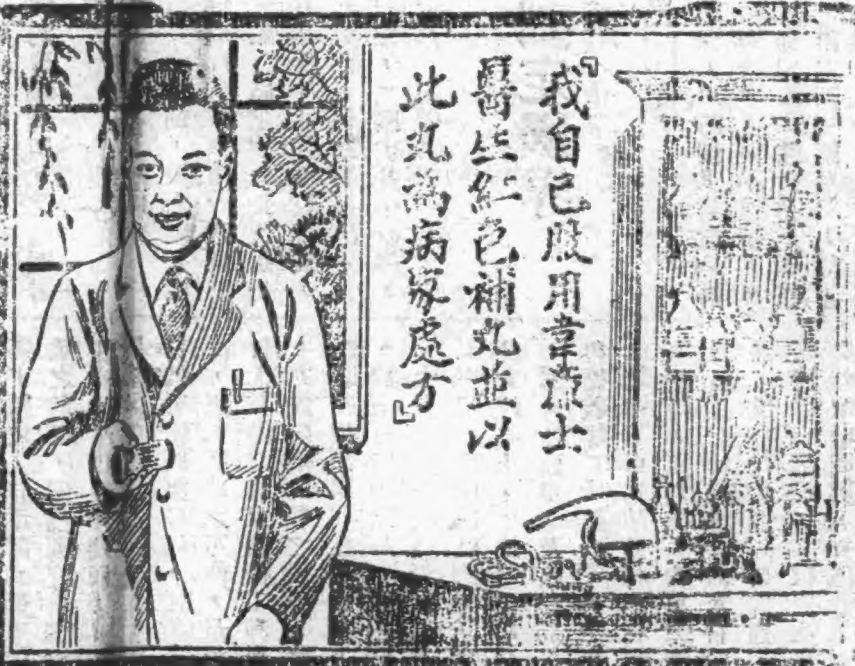 『我自己服用韋廉士
醫生紅色補丸並以
此丸爲病家處方』